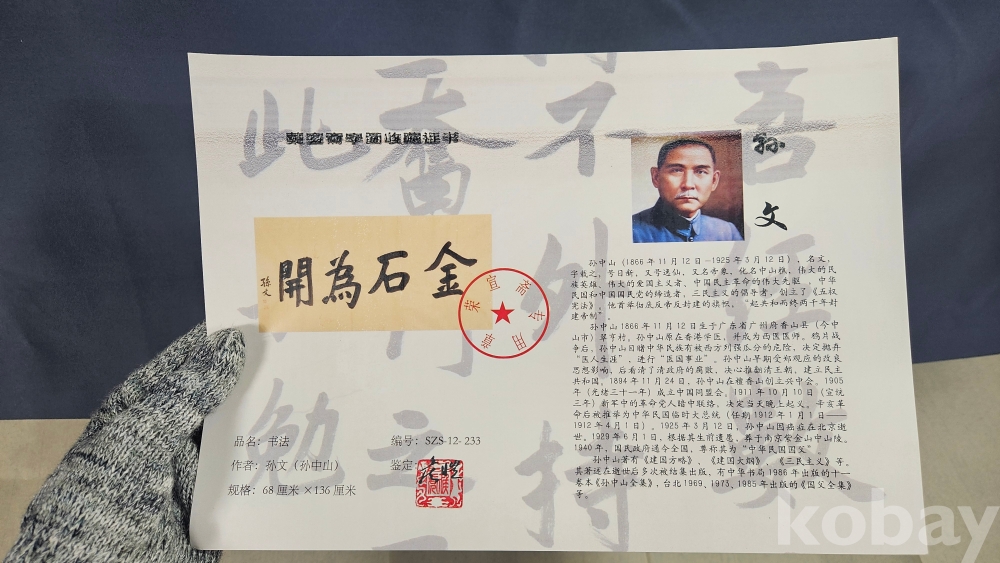 荣宣斋字画收藏证书
金石為開
孫文
荣宣斋专用章
品名：书法
编号：SZS-12-233
作者：孙文（孙中山）
鉴定：
规格：68 厘米 ×136 厘米
孙文
孙中山（1866 年 11 月 12 日－1925 年 3 月 12 日），名文，
字载之，号日新，又号逸仙，又名帝象，化名中山樵，伟大的民
族英雄、伟大的爱国主义者、中国民主革命的伟大先驱，中华
民国和中国国民党的缔造者，三民主义的倡导者，创立了《五权
宪法》，他首举彻底反帝反封建的旗帜，“起共和而终两千年封
建帝制”。
孙中山 1866 年 11 月 12 日生于广东省广州府香山县（今中
山市）翠亨村，孙中山原在香港学医，并成为西医医师。鸦片战
争后，孙中山目睹中华民族有被西方列强瓜分的危险，决定抛弃
“医人生涯”，进行“医国事业”。孙中山早期受郑观应的改良
思想影响，后看清了清政府的腐败，决心推翻清王朝，建立民主
共和国。1894 年 11 月 24 日，孙中山在檀香山创立兴中会。1905
年（光绪三十一年）成立中国同盟会。1911 年 10 月 10 日（宣统
三年）新军中的革命党人暗中联络，决定当天晚上起义。辛亥革
命后被推举为中华民国临时大总统（任期 1912 年 1 月 1 日——
1912 年 4 月 1 日）。1925 年 3 月 12 日，孙中山因癌症在北京逝
世。1929 年 6 月 1 日，根据其生前遗愿，葬于南京紫金山中山陵。
1940 年，国民政府通令全国，尊称其为“中华民国国父”。
孙中山著有《建国方略》、《建国大纲》、《三民主义》等。
其著述在逝世后多次被结集出版，有中华书局 1986 年出版的十一
卷本《孙中山全集》，台北 1969、1973、1985 年出版的《国父全集》
等。
kobay